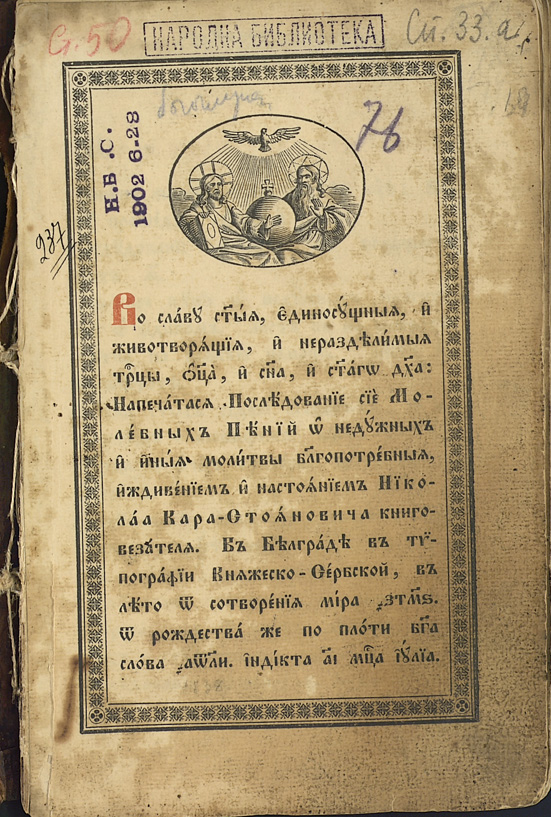 G. 50
НАРОДНА БИБЛИОТЕКА
Сп. 33. а
76
Н.Б.С.
1902 6-23
237
Во сла́вꙋ ст҃ы́ѧ, є҆диносꙋ́щныѧ, и҆
животворѧ́щїѧ, и҆ нераздѣли́мыѧ
трⷪ҇цы, ѻ҆ц҃а̀, и҆ сн҃а, и҆ ст҃а́гѡ дх҃а:
Напеча́тасѧ Послѣ́дованїе сїѐ Мо-
ле́бныхъ Пѣ́нїй ѡ҆ недꙋ́жныхъ
и҆ и҆ны́ѧ моли́твы бл҃гопотре́бныѧ,
и҆ждиве́нїемъ и҆ настоѧ́нїемъ Нїко-
ла́а Кара-Стоѧ́новича книго-
везꙋ́телѧ. Въ Бѣлгра́дѣ въ тѷ-
погра́фїи Кнѧжеско-Се́рбской, въ
лѣ́то ѿ сотворе́нїѧ мі́ра ҂зтм҃ѕ.
ѿ рождества́ же по пло́ти бг҃а
сло́ва ҂аѡ҃ли. і҆ндї́кта а҃і мцⷭ҇а і҆ꙋ́лїа.